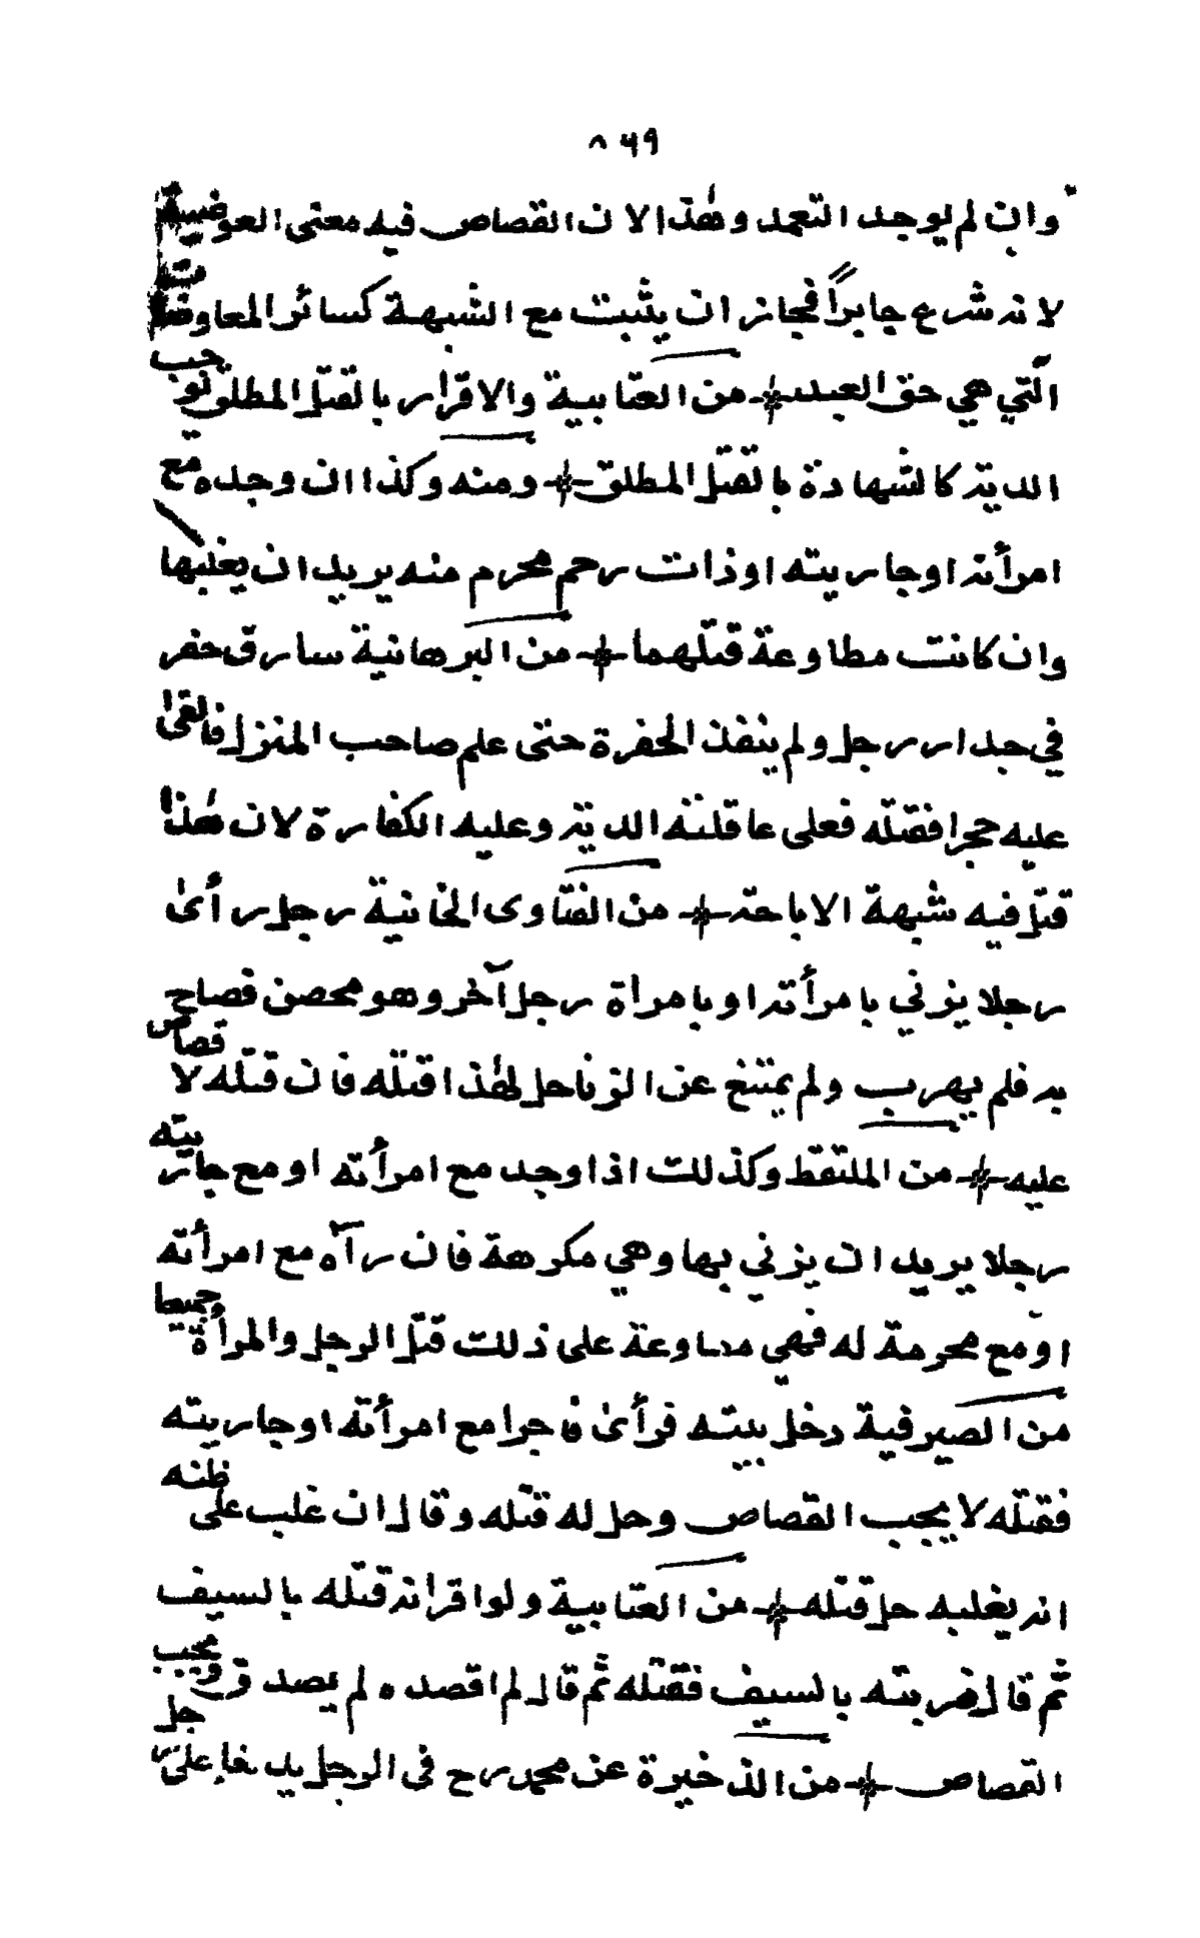 ٨٦٩
وان لم يوجد التعمد وهٰذا لان القصاص فيه معنى العوضية
لانه شرع جابراً فجاز ان يثبت مع الشبهة كسائر المعاوضات
الّتي هي حق العبد من العتابية والاقرار بالقتل المطلق يوجب
الدية كالشهادة بالقتل المطلق ومنه وكذا ان وجده مع
امرأته او جاريته او ذات رحم محرم منه يريد ان يغلبها
وان كانت مطاوعة قتلهما من البرهانية سارق حفر
في جدار رجل ولم ينفذ الحفرة حتى علم صاحب المنزل فالقى
عليه حجرا فقتله فعلى عاقلته الدية وعليه الكفارة لان هٰذا
قتل فيه شبهة الاباحة من الفتاوى الخانية رجل رأىٰ
رجلا يزني بامرأته او بامرأة رجل آخر وهو محصن فصاح
به فلم يهرب ولم يمتنع عن الزنا حل لهٰذا قتله فان قتله لا قصاص
عليه من الملتقط وكذلك اذا وجد مع امرأته او مع جاريته
رجلا يريد ان يزني بها وهي مكرهة فان رآه مع امرأته
او مع محرمة له فهي مطاوعة على ذلك قتل الرجل والمرأة جميعا
من الصيرفية دخل بيته فرأىٰ فاجرا مع امرأته او جاريته
فقتله لا يجب القصاص وحل له قتله وقال ان غلب على ظنه
انه يغلبه حل قتله من العتابية ولو اقر انه قتله بالسيف
ثم قال ضربته بالسيف فقتله ثم قال لم اقصده لم يصدق ويجب
القصاص من الذخيرة عن محمد رح في الرجل على رجل